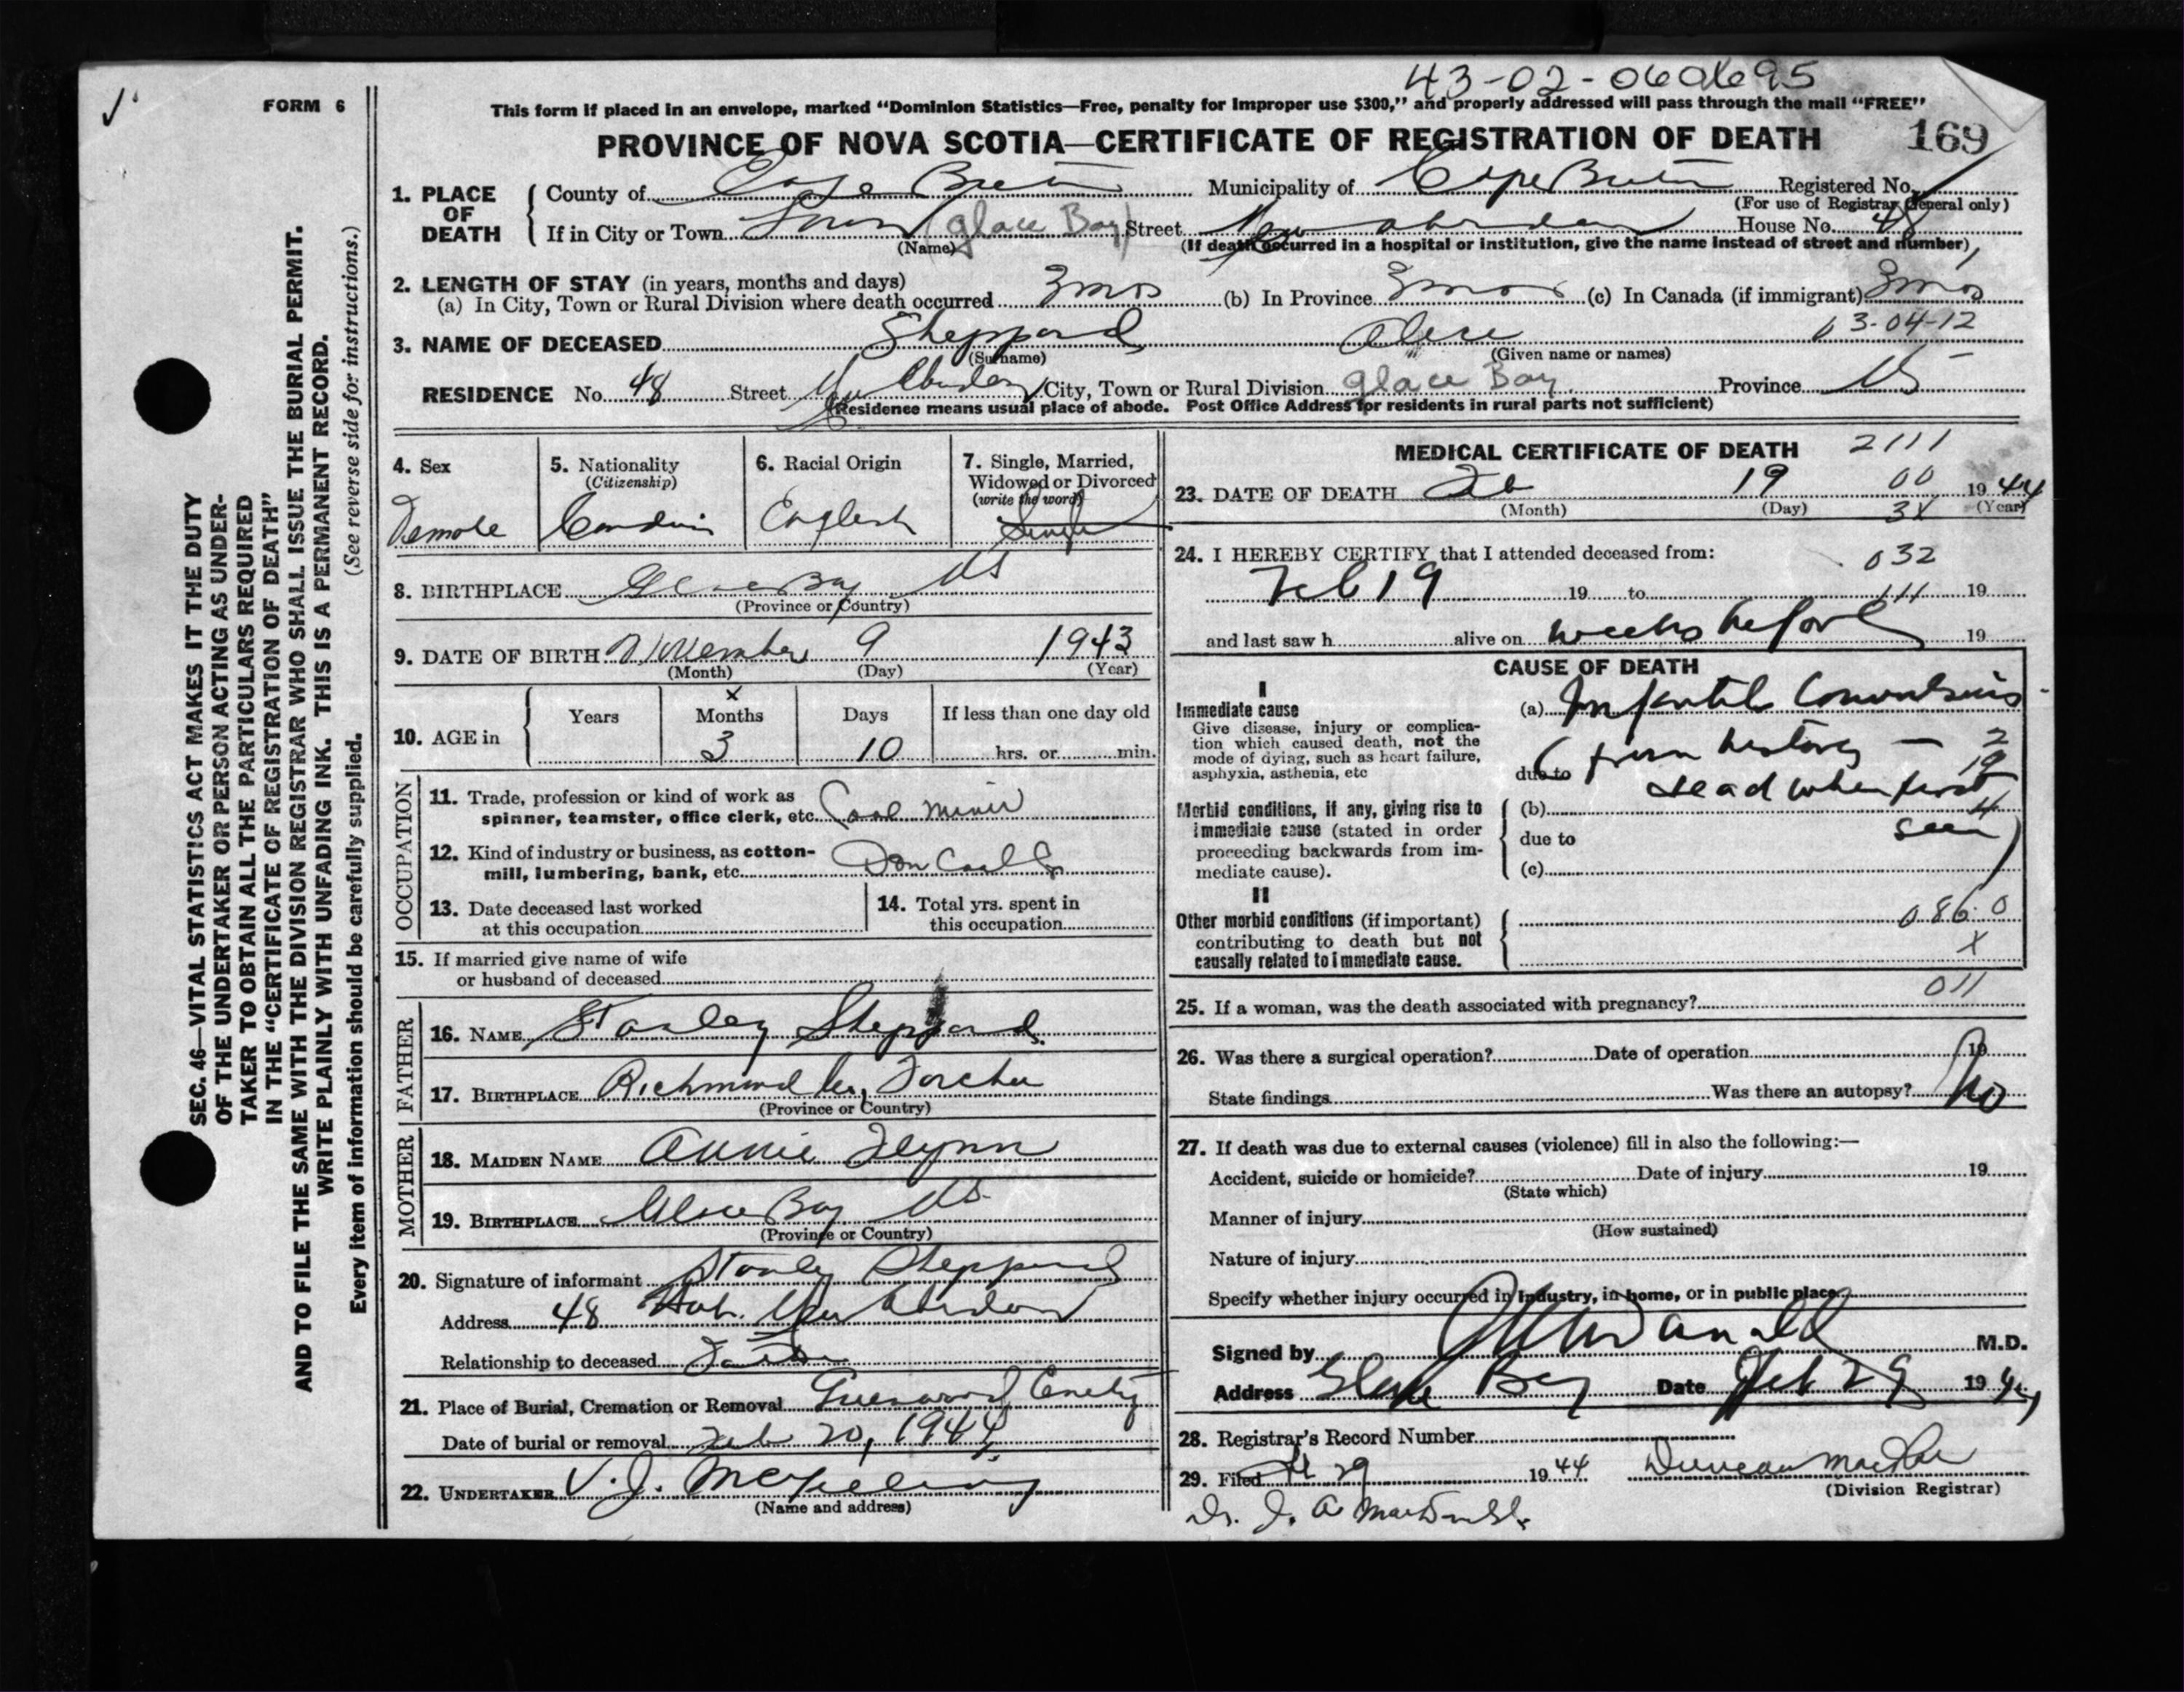 43-02-060695
✓ FORM 6
This form if placed in an envelope, marked “Dominion Statistics—Free, penalty for improper use $300,” and properly addressed will pass through the mail “FREE”
PROVINCE OF NOVA SCOTIA—CERTIFICATE OF REGISTRATION OF DEATH 169
1. PLACE OF DEATH { County of Cape Breton Municipality of Cape Breton Registered No.
(For use of Registrar General only)
If in City or Town Town (Glace Bay) Street New Aberdeen House No. 48
(Name) (If death occurred in a hospital or institution, give the name instead of street and number)
2. LENGTH OF STAY (in years, months and days)
(a) In City, Town or Rural Division where death occurred 3 mos (b) In Province 3 mos (c) In Canada (if immigrant) 3 mos
3. NAME OF DECEASED Sheppard Alice 03-04-12
(Surname) (Given name or names)
RESIDENCE No. 48 Street New Aberdeen City, Town or Rural Division Glace Bay Province NS
(Residence means usual place of abode. Post Office Address for residents in rural parts not sufficient)
4. Sex 5. Nationality (Citizenship) 6. Racial Origin 7. Single, Married, Widowed or Divorced (write the word)
Female Canadian English Single
8. BIRTHPLACE Glace Bay NS
(Province or Country)
9. DATE OF BIRTH November 9 1943
(Month) (Day) (Year)
10. AGE in { Years Months Days If less than one day old
x
3 10 hrs. or min.
OCCUPATION
11. Trade, profession or kind of work as
spinner, teamster, office clerk, etc. Coal miner
12. Kind of industry or business, as cotton-
mill, lumbering, bank, etc. Dom Coal Co
13. Date deceased last worked
at this occupation
14. Total yrs. spent in
this occupation
15. If married give name of wife
or husband of deceased
FATHER
16. NAME Stanley Sheppard
17. BIRTHPLACE Richmond Co, Forchu
(Province or Country)
MOTHER
18. MAIDEN NAME Annie Flynn
19. BIRTHPLACE Glace Bay NS.
(Province or Country)
20. Signature of informant Stanley Sheppard
Address 48 New Aberdeen
Relationship to deceased Father
21. Place of Burial, Cremation or Removal Greenwood Cemetery
Date of burial or removal Feb 20, 1944
22. UNDERTAKER V. J.
(Name and address)
MEDICAL CERTIFICATE OF DEATH 2111
23. DATE OF DEATH Feb 19 00 1944
(Month) (Day) 3X (Year)
24. I HEREBY CERTIFY that I attended deceased from: 032
Feb 19 19 to 111 19
and last saw h alive on weeks before 19
CAUSE OF DEATH
I
Immediate cause
Give disease, injury or complica-
tion which caused death, not the
mode of dying, such as heart failure,
asphyxia, asthenia, etc
(a) Infantile Convulsions
due to (from history — 2
19
dead when first
(b) 4
due to seen)
(c)
Morbid conditions, if any, giving rise to
immediate cause (stated in order
proceeding backwards from im-
mediate cause).
II
Other morbid conditions (if important)
contributing to death but not
causally related to immediate cause.
086.0
X
25. If a woman, was the death associated with pregnancy? 011
26. Was there a surgical operation? Date of operation 19
State findings Was there an autopsy? No
27. If death was due to external causes (violence) fill in also the following:—
Accident, suicide or homicide? Date of injury 19
(State which)
Manner of injury
(How sustained)
Nature of injury
Specify whether injury occurred in industry, in home, or in public place
Signed by M.D.
Address Glace Bay Date Feb 29 1944
28. Registrar's Record Number
29. Filed 29 1944 Duncan MacRae
(Division Registrar)
Dr. J. A. MacDonald.
SEC. 46—VITAL STATISTICS ACT MAKES IT THE DUTY
OF THE UNDERTAKER OR PERSON ACTING AS UNDER-
TAKER TO OBTAIN ALL THE PARTICULARS REQUIRED
IN THE “CERTIFICATE OF REGISTRATION OF DEATH”
AND TO FILE THE SAME WITH THE DIVISION REGISTRAR WHO SHALL ISSUE THE BURIAL PERMIT.
WRITE PLAINLY WITH UNFADING INK. THIS IS A PERMANENT RECORD.
Every item of information should be carefully supplied. (See reverse side for instructions.)